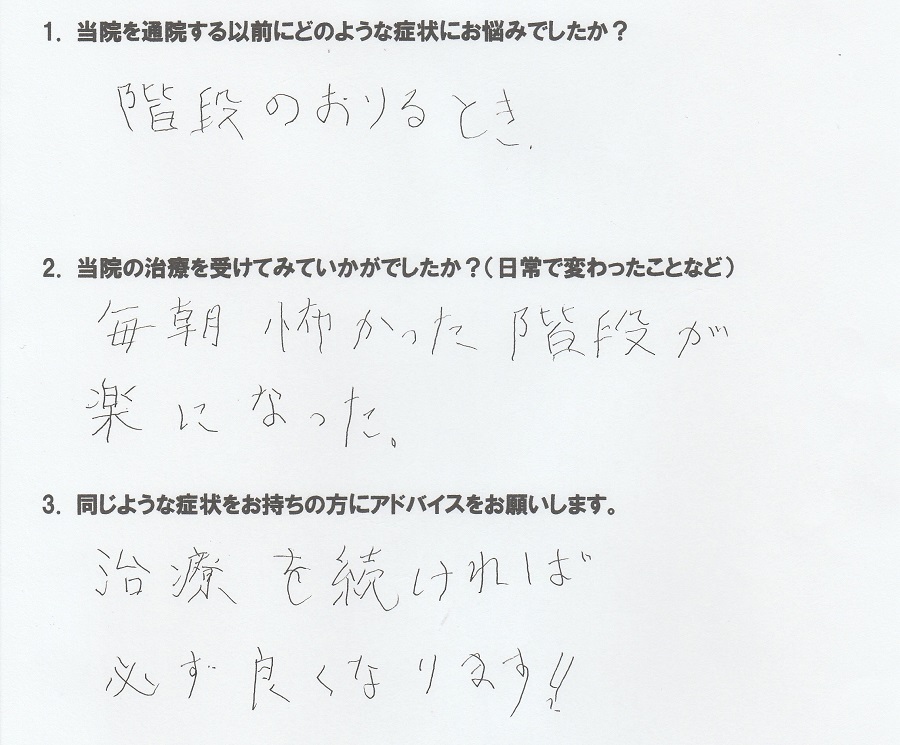 1. 当院を通院する以前にどのような症状にお悩みでしたか？
階段のおりるとき.
2. 当院の治療を受けてみていかがでしたか？（日常で変わったことなど）
毎朝 怖かった 階段が
楽になった。
3. 同じような症状をお持ちの方にアドバイスをお願いします。
治療を続ければ
必ず良くなります!!